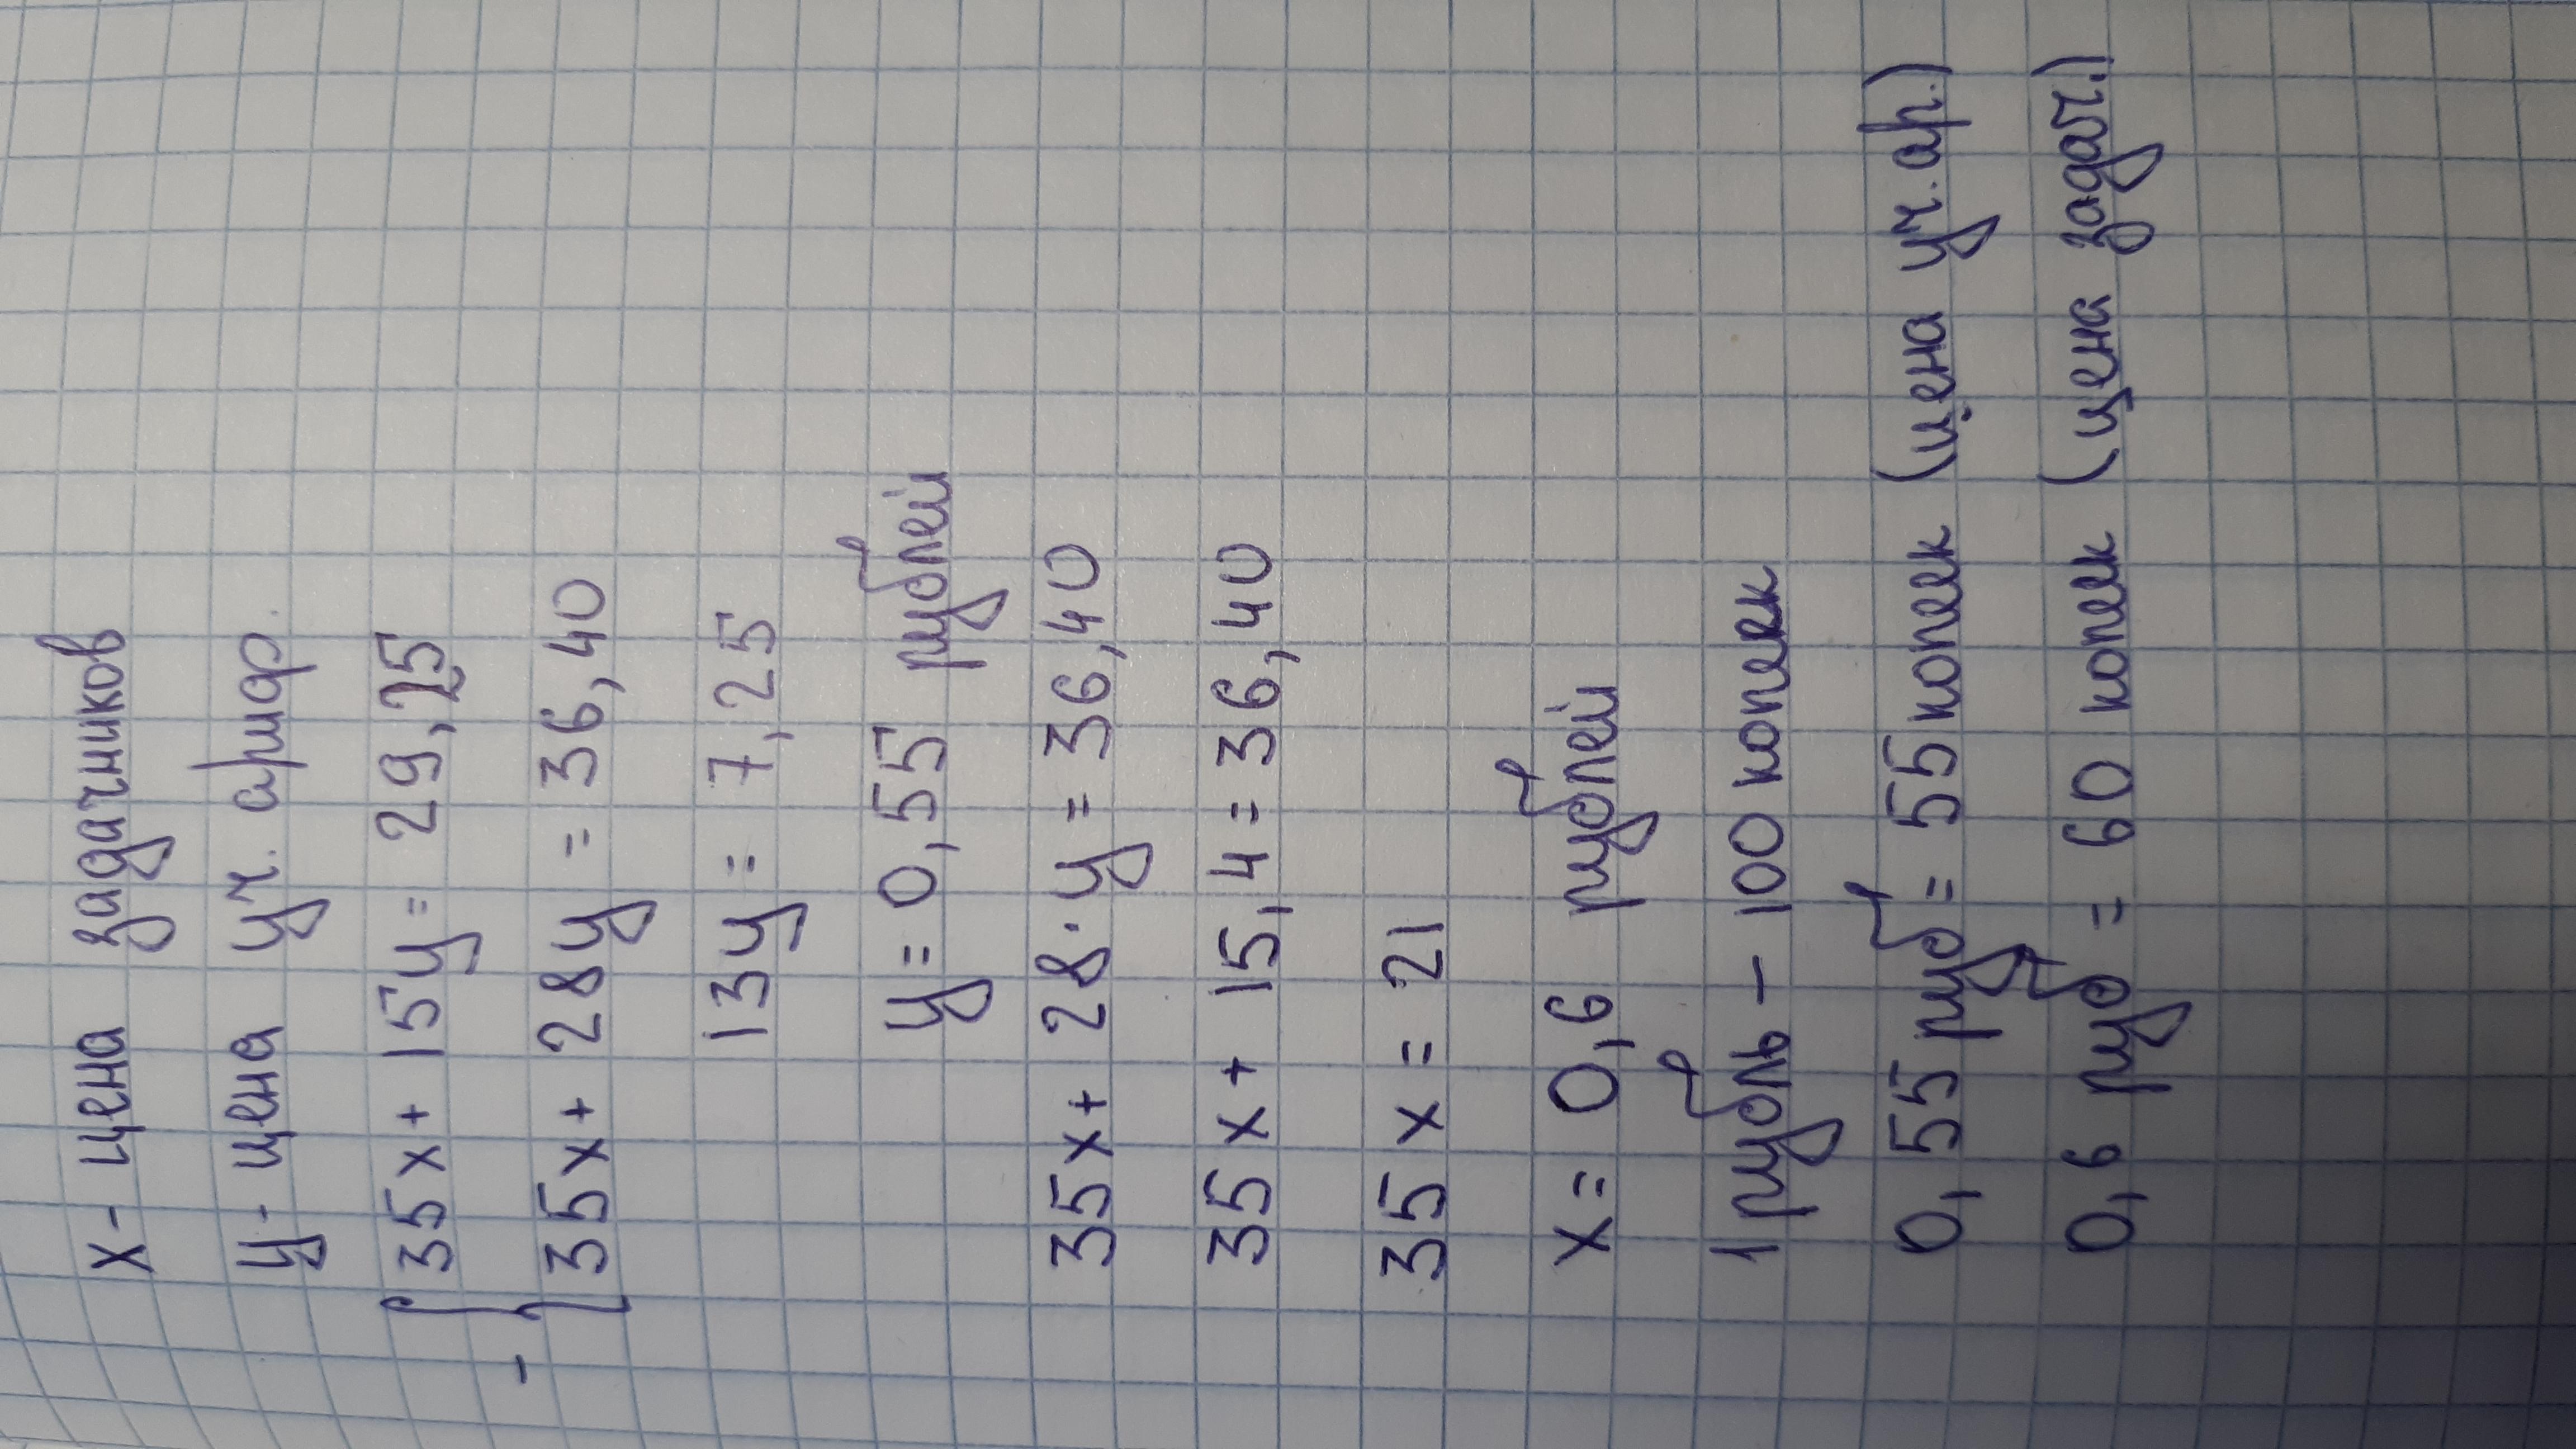 х- цена задачников
у- цена уч. ариф.
35х+ 15у= 29,25
- { 35х+ 28у = 36,40
13у= 7,25
у=0,55 рублей
35х+ 28·у=36,40
35х+ 15,4=36,40
35х=21
х=0,6 рублей
1рубль-100копеек
0,55руб=55копек (цена уч.ар.)
0,6 руб = 60 копек (цена задач.)